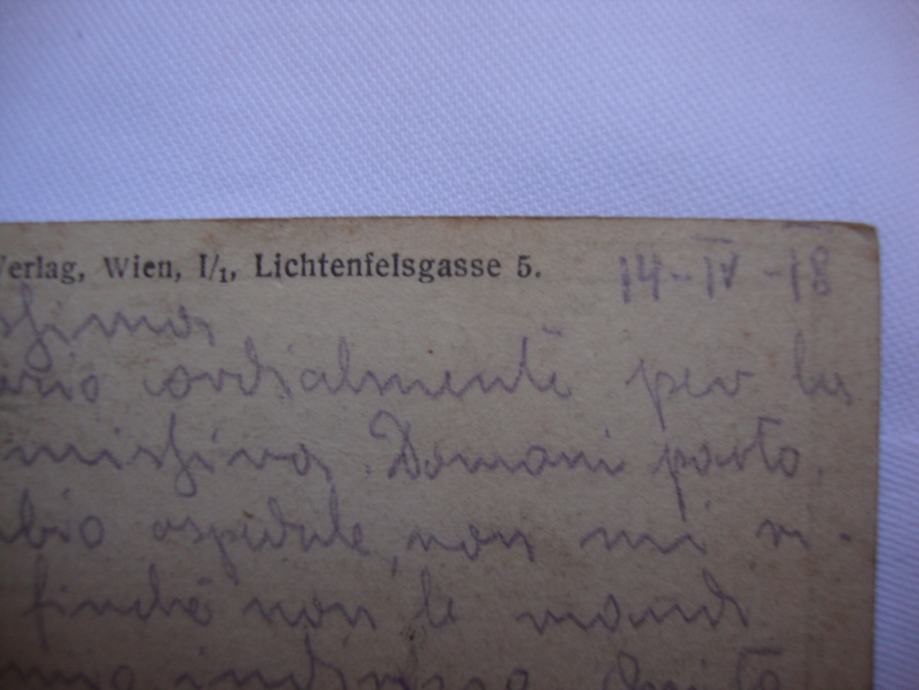 Verlag, Wien, I/1, Lichtenfelsgasse 5.
14-IV-18
ssima
ario cordialmente per la
missiva. Domani parto,
mbio ospedale, non mi ri-
finchè non le mandi